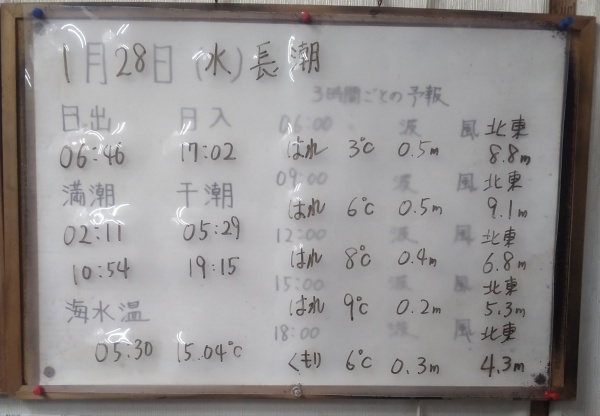 1月28日(水)長潮
3時間ごとの予報
日.出 日入
06:46 17:02
満潮 干潮
02:11 05:29
10:54 19:15
海水温
05:30 15.04℃
06:00 波 風 北東
はれ 3℃ 0.5m 8.8m
09:00 波 風 北東
はれ 6℃ 0.5m 9.1m
12:00 波 風 北東
はれ 8℃ 0.4m 6.8m
15:00 波 風 北東
はれ 9℃ 0.2m 5.3m
18:00 波 風 北東
くもり 6℃ 0.3m 4.3m